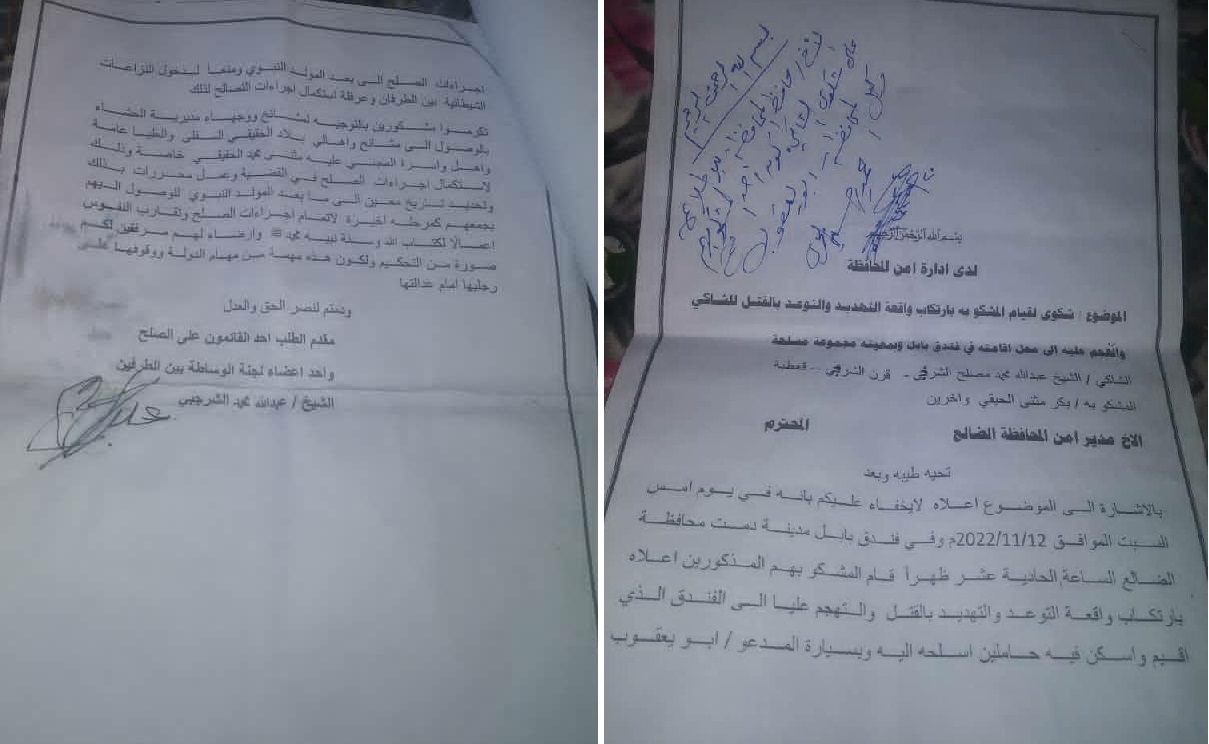 اجراءات الصلح الى بعد المولد النبوي ومنعا لدخول النزاعات
الشيطانية بين الطرفان وعرقلة استكمال اجراءات التصالح لذلك
تكرموا مشكورين بالتوجيه لمشائخ ووجهاء مديرية الحشاء
بالوصول الى مشائخ واهالي بلاد الحقيقي السفلى والعليا عامة
واهل واسرة المجني عليه مثنى محمد الحقيقي خاصة وذلك
لاستكمال اجراءات الصلح في القضية وعمل محررات بذلك
وتحديد تاريخ معين الى ما بعد المولد النبوي للوصول اليهم
بجمعهم كمرحله اخيرة لاتمام اجراءات الصلح وتقارب النفوس
اعمالا لكتاب الله وسنة نبيه محمد ﷺ وارضاء لهم مرفقين لكم
صورة من التحكيم ولكون هذه مهمة من مهام الدولة ووقوفها على
رجليها امام عدالتها
ودمتم لنصر الحق والعدل
مقدم الطلب احد القائمون على الصلح
واحد اعضاء لجنة الوساطة بين الطرفين
الشيخ / عبدالله محمد الشرجبي
بسم الله الرحمن الرحيم
بسم الله الرحمن الرحيم
لدى ادارة امن المحافظة
الموضوع / شكوى لقيام المشكو به بارتكاب واقعة التهديد والتوعد بالقتل للشاكي
والتهجم عليه الى محل اقامته في فندق بابل وبمعيته مجموعة مسلحة
الشاكي / الشيخ عبدالله محمد مصلح الشرجبي - قرن الشرجبي - قعطبة
المشكو به / بكر مثنى الحيقي واخرين
الاخ مدير امن المحافظة الضالع المحترم
تحيه طيبه وبعد
بالاشارة الى الموضوع اعلاه لايخفاء عليكم بانه في يوم امس
السبت الموافق 2022/11/12م وفي فندق بابل مدينة دمت محافظة
الضالع الساعة الحادية عشر ظهرا قام المشكو بهم المذكورين اعلاه
بارتكاب واقعة التوعد والتهديد بالقتل والتهجم عليا الى الفندق الذي
اقيم واسكن فيه حاملين اسلحه اليه وبسيارة المدعو / ابو يعقوب